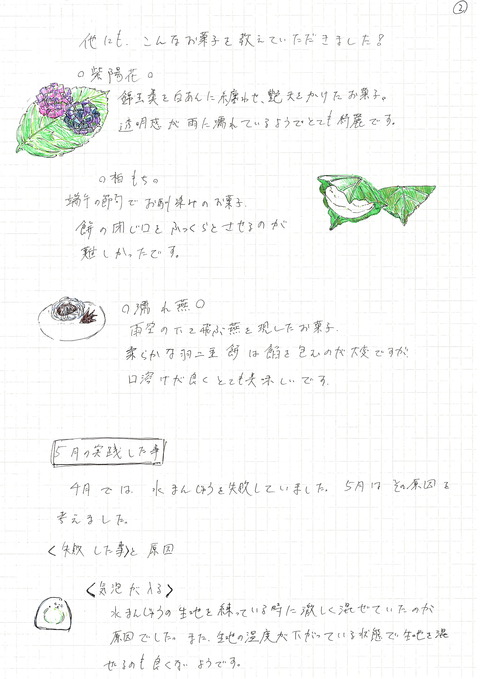 2
他にも、こんなお菓子を教えていただきました!
○紫陽花○
錦玉羹を白あんに付着させ、艶天をかけたお菓子。
透明感が雨に濡れているようでとても綺麗です。
○柏もち○
端午の節句でお馴染みのお菓子。
餅の閉じ口をふっくらとさせるのが
難しかったです。
○濡れ燕○
雨空の下を飛ぶ燕を現したお菓子。
柔らかな羽二重餅は餡を包むのが大変ですが
口溶けが良くとても美味しいです。
5月の実践した事
4月では水まんじゅうを失敗していました。5月はその原因を
考えました。
<失敗した事>と原因
<気泡が入る>
水まんじゅうの生地を練っている時に激しく混ぜていたのが
原因でした。また、生地の温度が下がっている状態で生地を混
ぜるのも良くないようです。